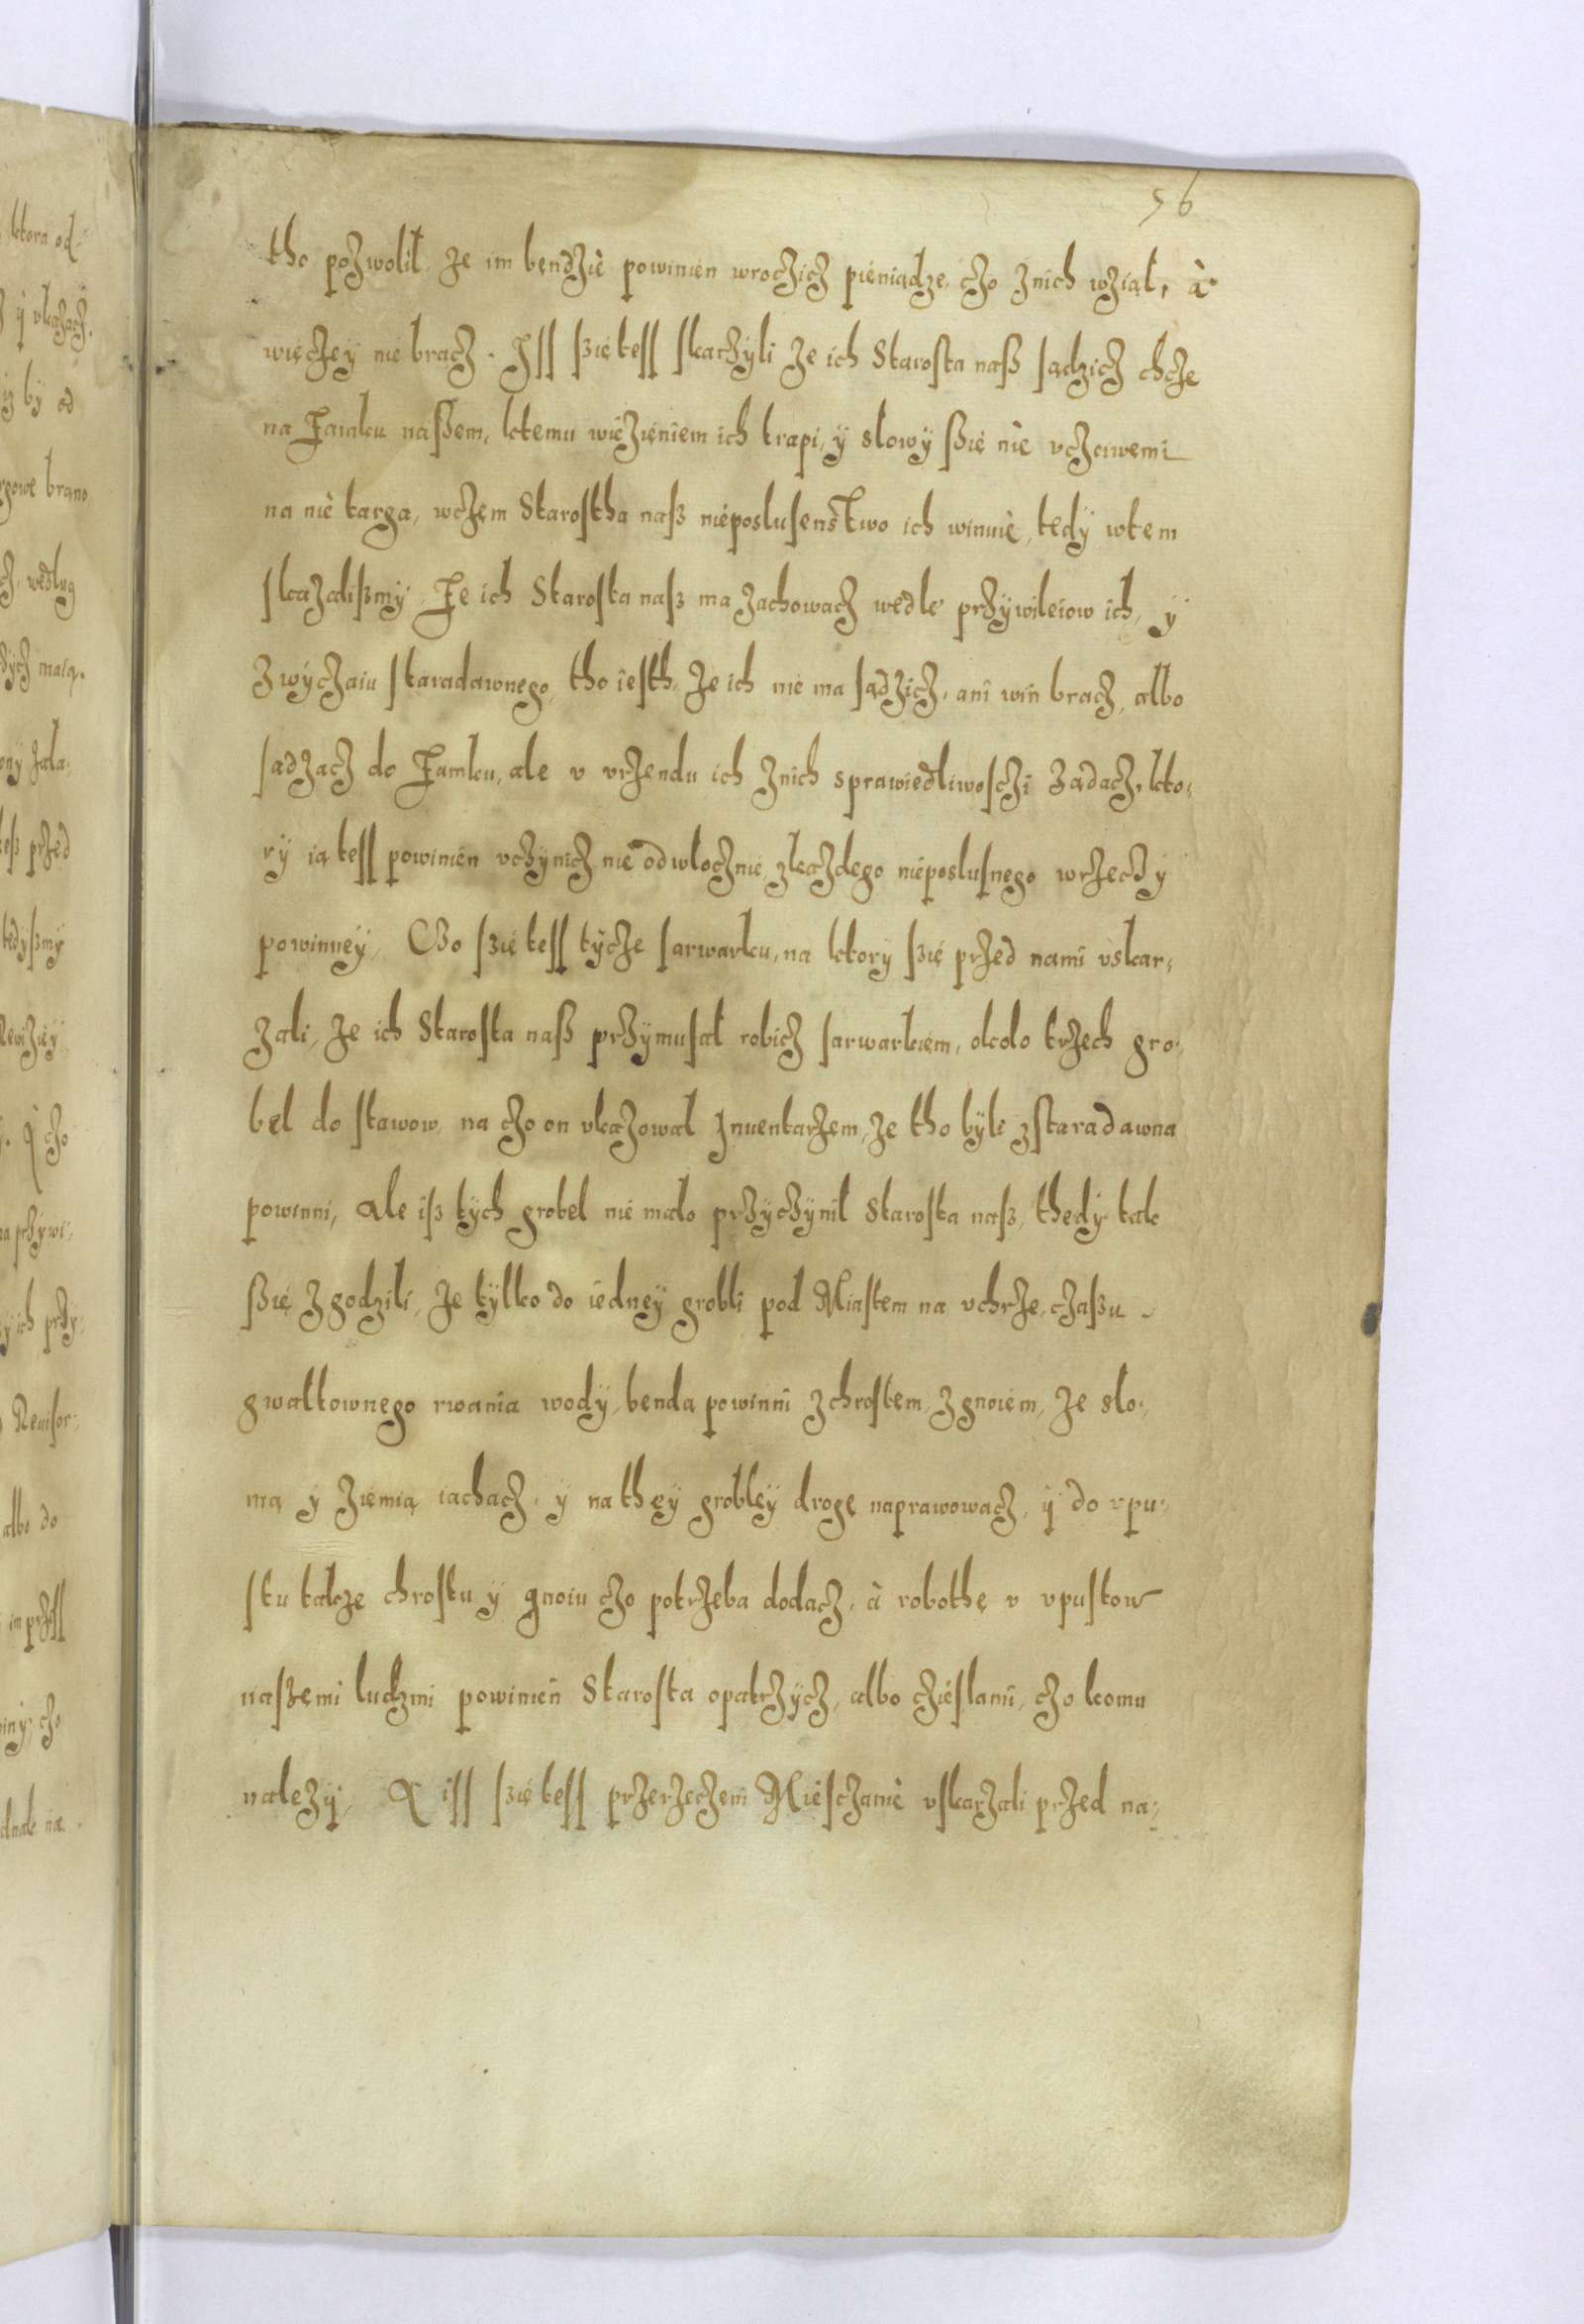 56
ktora od-
tho pozwolil ze im bendzie powinien wroczicz pieniądze, czo znich wziął, à
więczey nie bracz. Iss ßię tess skarzyli ze ich Starosta naß sądzicz chcze
na Zamku naßem, ktemu więzieniem ich trapi, ÿ slowÿ ßię nie vczciwemi
na nie targa, wczem Starostha naß nieposlusenstwo ich winuie, tedÿ wtem
skazalißmÿ Ze ich Starosta naß ma zachowacz wedle przÿwileiow ich, ÿ
zwÿczaiu staradawnego, tho iesth, ze ich nie ma sądzicz, ani win bracz, albo
sadzacz do Zamku, ale v vrzendu ich znich sprawiedliwosczi żądacz, kto-
rÿ ią tess powinien vczÿnicz nie odwlocznie zkazdego nieposlusnego wrzeczÿ
powinneÿ, Czo ßię tess tÿcze sarwarku, na ktorÿ ßię przed nami vskar-
zali, ze ich Starosta naß przÿmusał robicz sarwarkiem, okolo trzech gro-
bel do stawow, na czo on vkazował Inuentarzem, ze tho bÿli zstaradawna
powinni, ale iß tÿch grobel nie mało przÿczÿnil Starosta naß, thedÿ tak
ßię zgodzili, ze tÿlko do iedneÿ grobli pod Miastem na vchrze, czaßu
gwałtownego rwania wodÿ, benda powinni zchrostem, zgnoiem, ze slo-
mą ÿ ziemią iachacz, ÿ na theÿ grobleÿ drogę naprawowacz, ÿ do vpu-
stu takze chrostu ÿ gnoiu czo potrzeba dodacz, à robothę v vpustow
naszemi ludzmi powinien Starosta opatrzÿcz, albo czieslami, czo komu
nalezÿ, A iss ßię tess przerzeczeni Miesczanie vskarzali przed na-